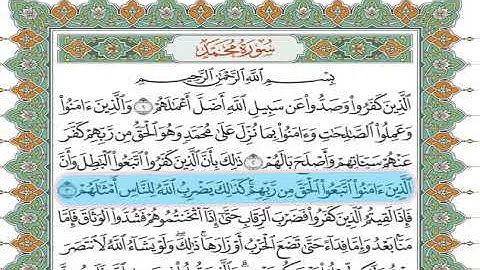 سُورَةُ مُحَمَّدٍ
بِسْمِ اللَّهِ الرَّحْمَٰنِ الرَّحِيمِ
الَّذِينَ كَفَرُوا وَصَدُّوا عَن سَبِيلِ اللَّهِ أَضَلَّ أَعْمَالَهُمْ ۝١ وَالَّذِينَ ءَامَنُوا
وَعَمِلُوا الصَّالِحَاتِ وَءَامَنُوا بِمَا نُزِّلَ عَلَىٰ مُحَمَّدٍ وَهُوَ الْحَقُّ مِن رَّبِّهِمْ كَفَّرَ
عَنْهُمْ سَيِّئَاتِهِمْ وَأَصْلَحَ بَالَهُمْ ۝٢ ذَٰلِكَ بِأَنَّ الَّذِينَ كَفَرُوا اتَّبَعُوا الْبَاطِلَ وَأَنَّ
الَّذِينَ ءَامَنُوا اتَّبَعُوا الْحَقَّ مِن رَّبِّهِمْ ۚ كَذَٰلِكَ يَضْرِبُ اللَّهُ لِلنَّاسِ أَمْثَالَهُمْ ۝٣
فَإِذَا لَقِيتُمُ الَّذِينَ كَفَرُوا فَضَرْبَ الرِّقَابِ حَتَّىٰ إِذَا أَثْخَنتُمُوهُمْ فَشُدُّوا الْوَثَاقَ فَإِمَّا
مَنًّا بَعْدُ وَإِمَّا فِدَاءً حَتَّىٰ تَضَعَ الْحَرْبُ أَوْزَارَهَا ۚ ذَٰلِكَ ۖ وَلَوْ يَشَاءُ اللَّهُ لَانتَصَرَ